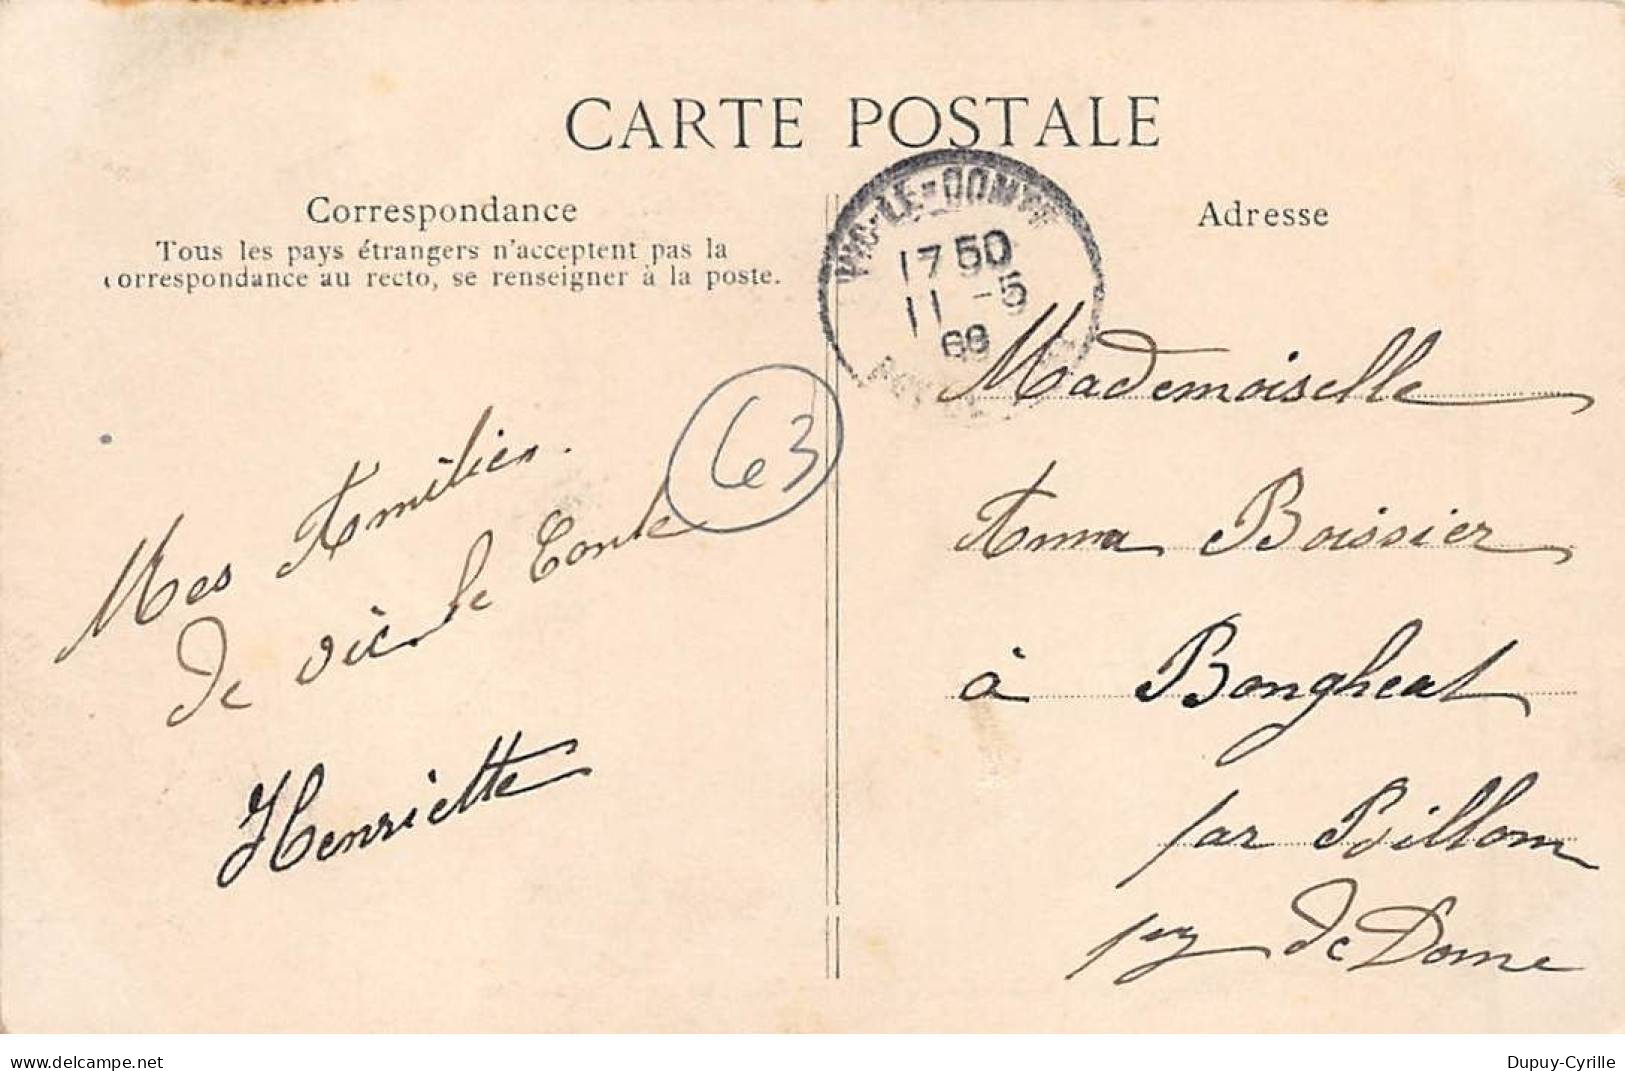 CARTE POSTALE
Correspondance
Tous les pays étrangers n'acceptent pas la
correspondance au recto, se renseigner à la poste.
Mes Amitiés.
de vic le Conte
Henriette
63
VIC-LE-COMTE
17 50
11 -5
Adresse
Mademoiselle
Anna Boissier
à Bongheat
par Billom
puy de Dome
www.delcampe.net
Dupuy-Cyrille